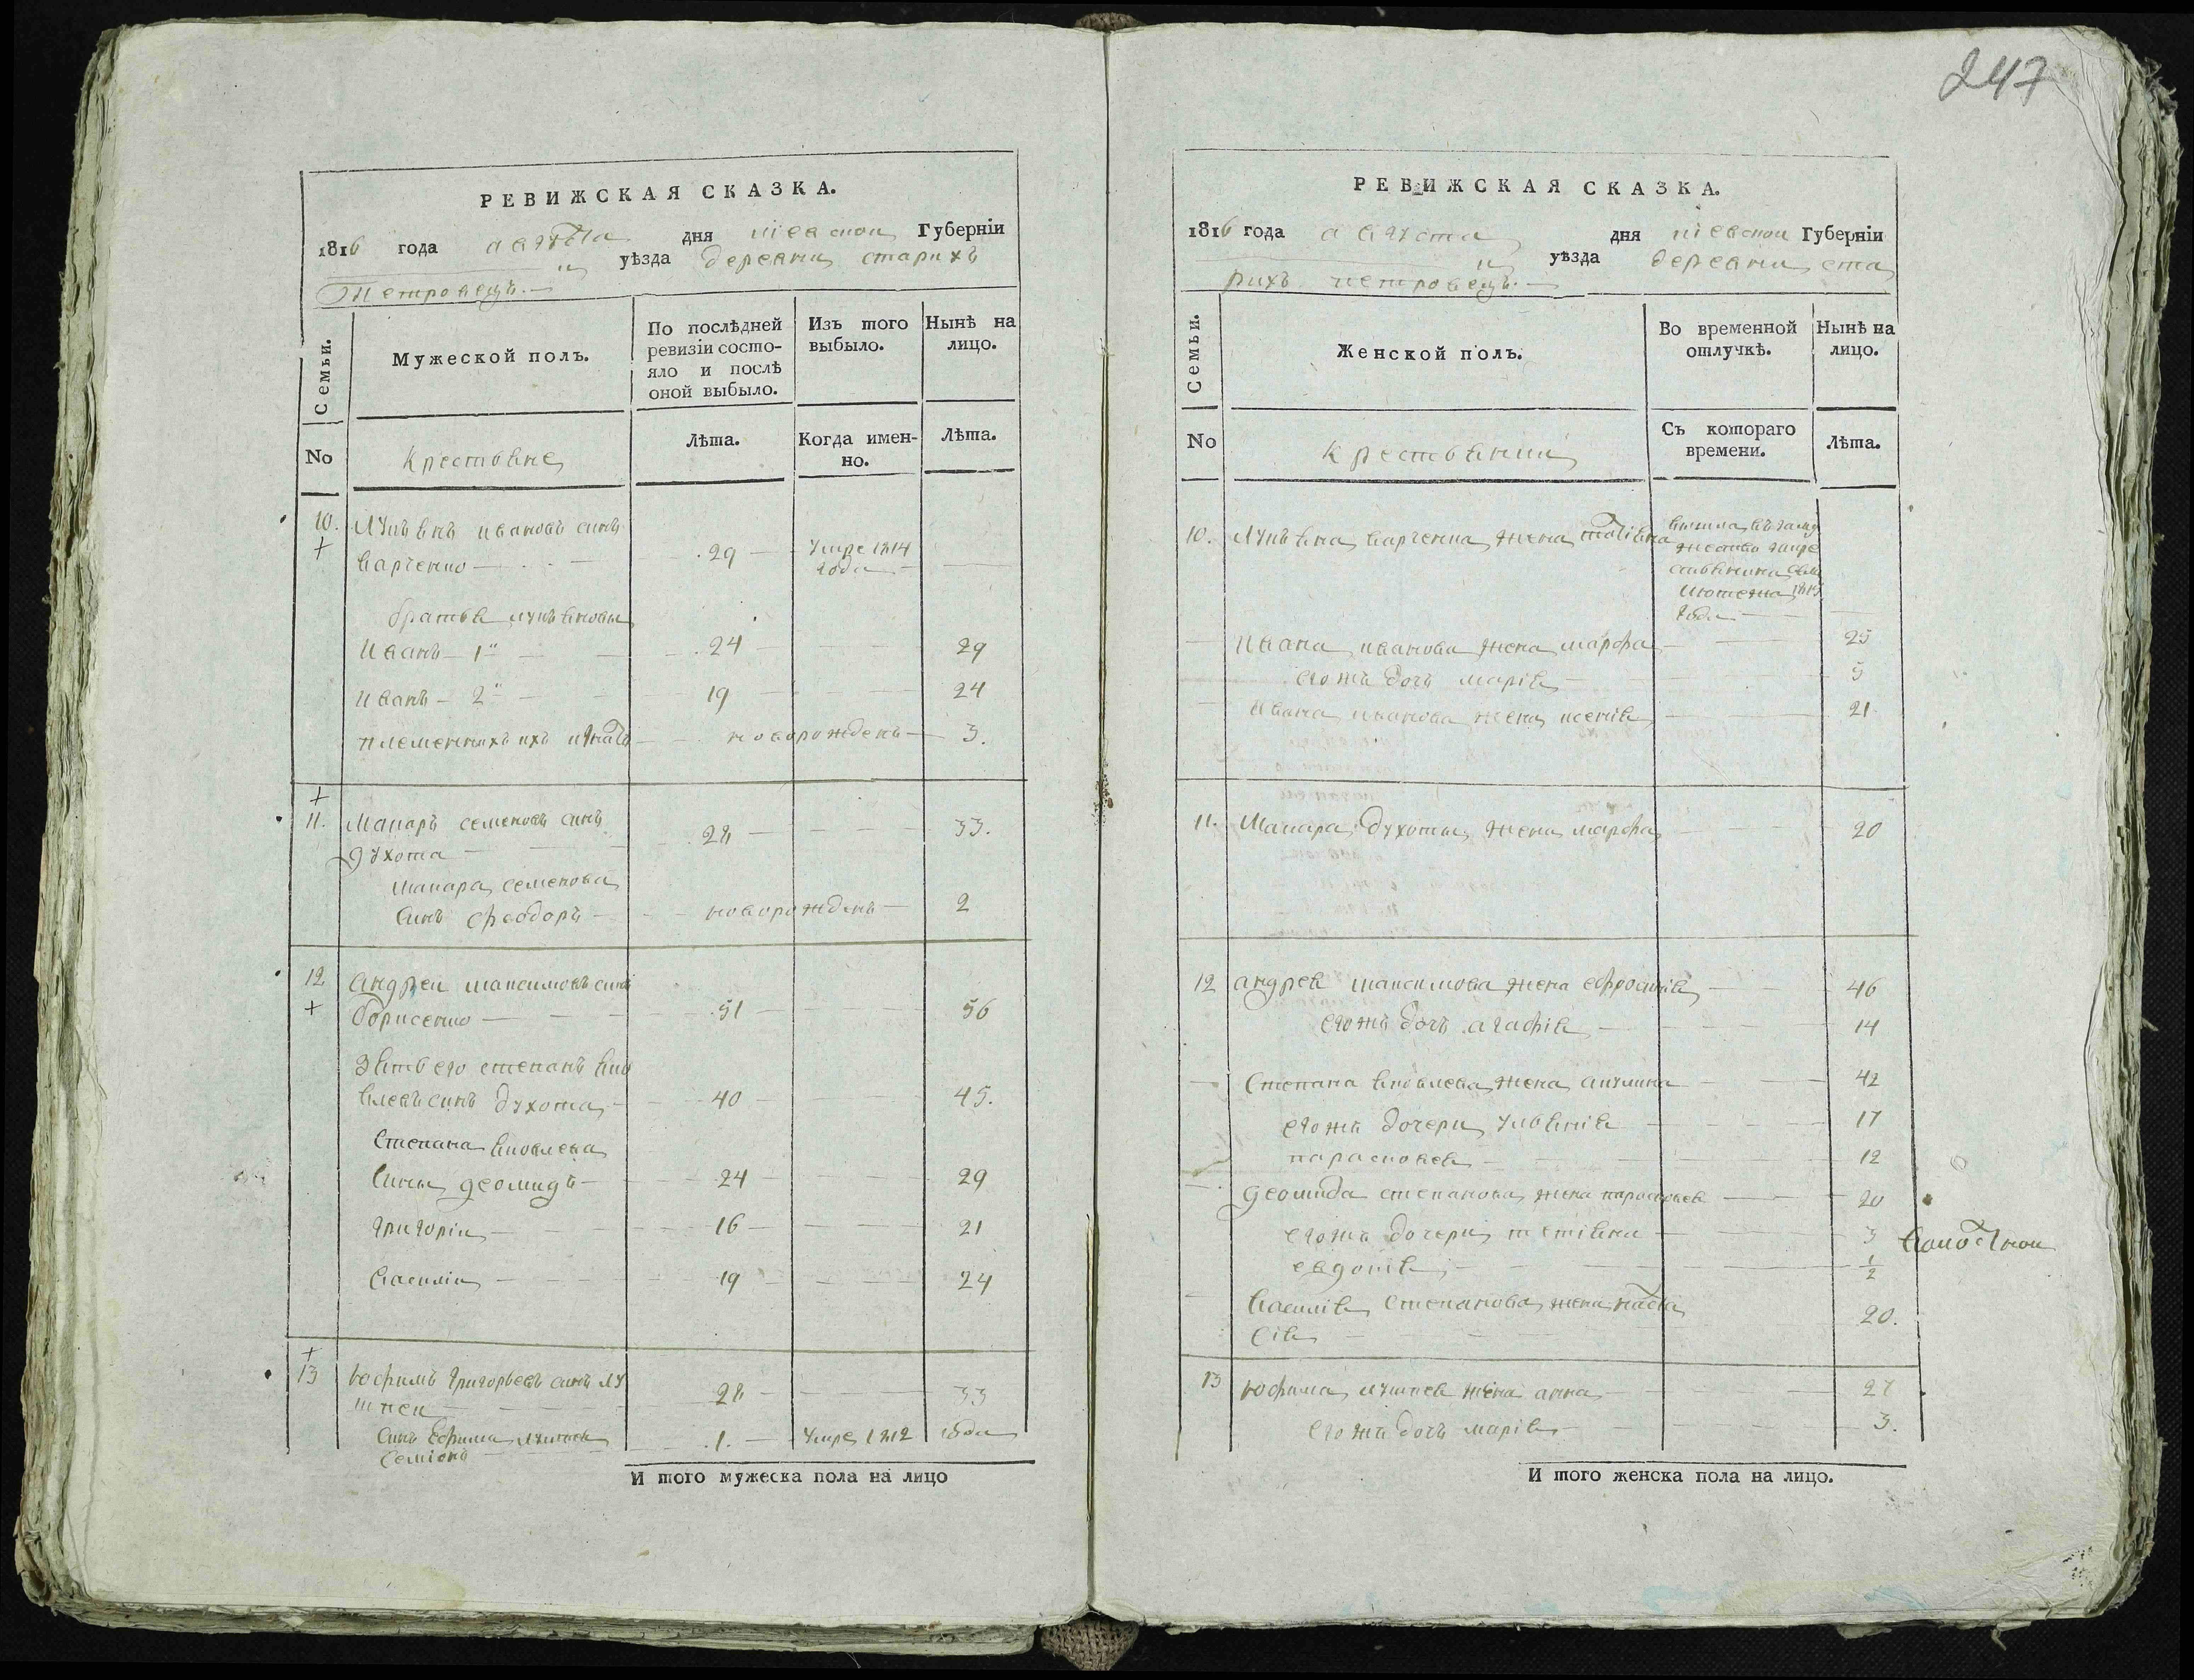 247
РЕВИЖСКАЯ СКАЗКА.
1816 года августа дня киевской Губерніи
и уѣзда деревни старихъ
Петровецъ.
Семьи.
Мужеской полъ.
По послѣдней ревизіи состо-
яло и послѣ оной выбыло.
Изъ того выбыло.
Нынѣ на лицо.
No
Крестьяне
Лѣта.
Когда имен-
но.
Лѣта.
10. Лукъянъ ивановъ синъ
варченко 29 Умре 1814
года
братья лукъяновы
Иванъ 1й 24 29
Иванъ 2й 19 24
племенникъ ихъ игнатъ новорожденъ 3.
11. Макаръ семеновъ синъ 28 33.
духота
макара семенова
синъ феодоръ новорожденъ 2
12 андреи максимовъ синъ
борисенко 51 56
зять его степанъ яко
влевъ синъ духота 40 45.
степана яковлева
сины деомидъ 24 29
григоріи 16 21
василіи 19 24
13 юфимъ григорьевъ синъ лу 28 33
шпеи
синъ Ефима 1. Умре 1812 года
семіонъ
И того мужеска пола на лицо
РЕВИЖСКАЯ СКАЗКА.
1816 года августа дня киевской Губерніи
и уѣзда деревни ста
рихъ петровецъ.
Семьи.
Женской полъ.
Во временной отлучкѣ.
Нынѣ на лицо.
No
Крестьянки
Съ котораго времени.
Лѣта.
10. Лукъяна варченка жена вышла въ заму
жество за кре
стьянина
1815
года
Ивана иванова жена марфа 25
его жъ дочъ марія 5
Ивана иванова жена ксенія 21
11. Макара духоты жена марфа 20
12 андрея максимова жена ефросинія 46
его жъ дочъ агафія 14
Степана яковлева жена акулина 42
его жъ дочери улиянія 17
парасковея 12
деомида степанова жена парасковея 20
его жъ дочери тетіяна 3
евдокія 1/2
василія степанова жена наста
сія 20.
13 юфима жена анна 27
его жъ дочъ марія 3.
И того женска пола на лицо.